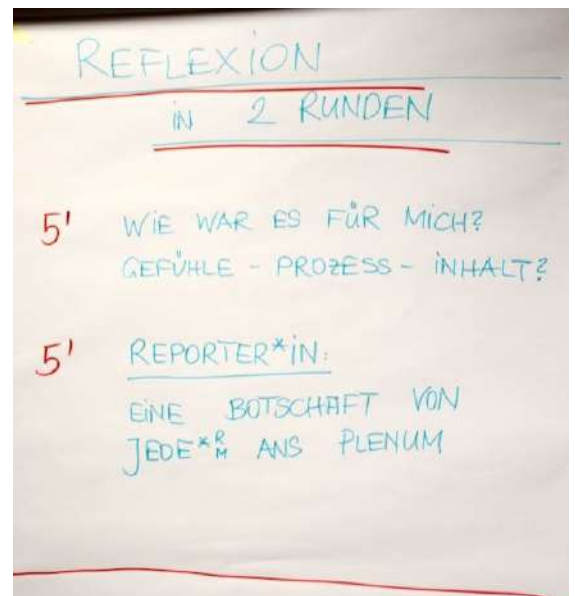 REFLEXION
IN 2 RUNDEN
5' WIE WAR ES FÜR MICH?
GEFÜHLE - PROZESS - INHALT?
5' REPORTER*IN:
EINE BOTSCHAFT VON
JEDE*R M ANS PLENUM